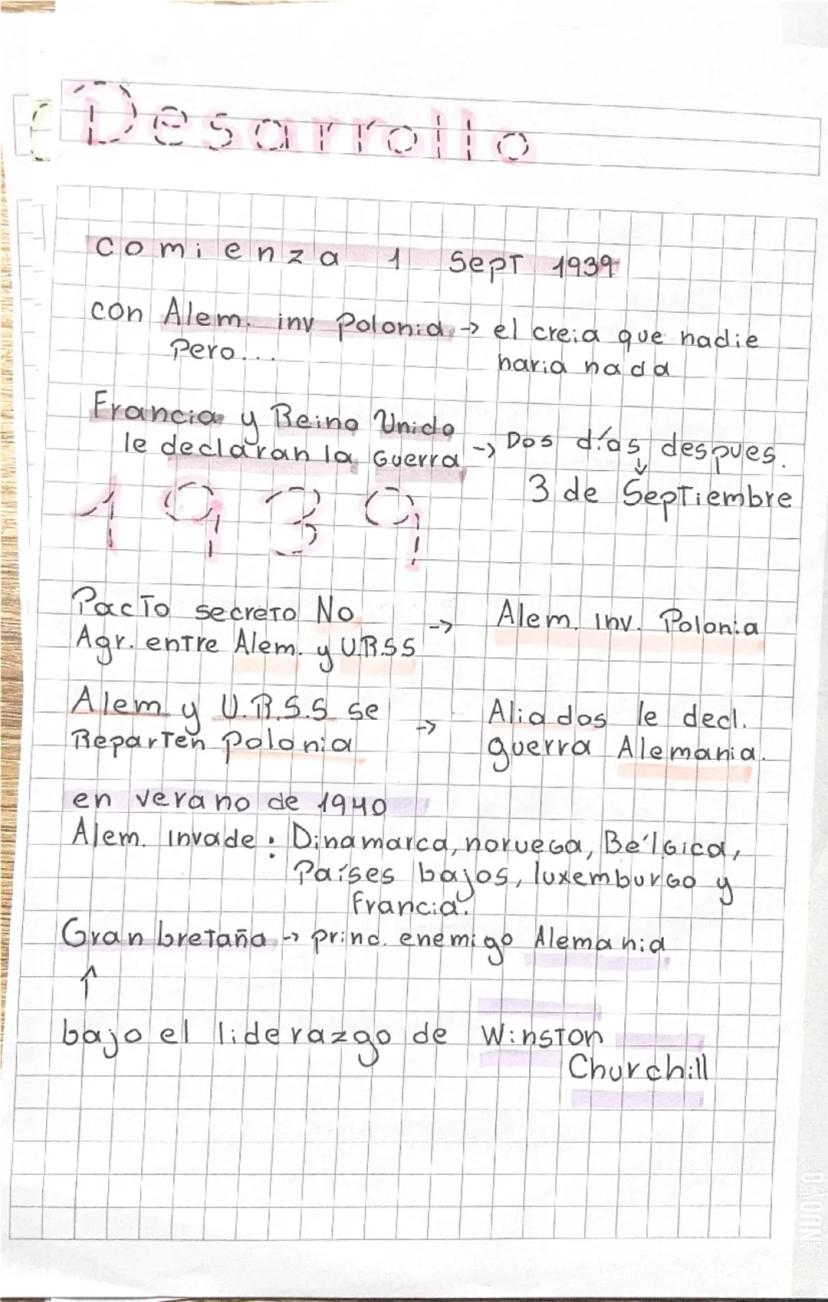 Desarrollo
comienza 1 Sept 1939
con Alem. inv Polonia → el creia que nadie
Pero... haria nada
Francia y Reino Unido
le declaran la Guerra → Dos días despues.
↓
3 de Septiembre
1939
Pacto secreto No → Alem. inv. Polonia
Agr. entre Alem. y U.R.SS
Alem y U.R.S.S se → Aliados le decl.
Reparten Polonia guerra Alemania.
en verano de 1940
Alem. invade : Dinamarca, noruega, Bélgica,
Países bajos, luxemburgo y
Francia.
Gran bretaña → princ. enemigo Alemania
↑
bajo el liderazgo de Winston
Churchill
NUOVO